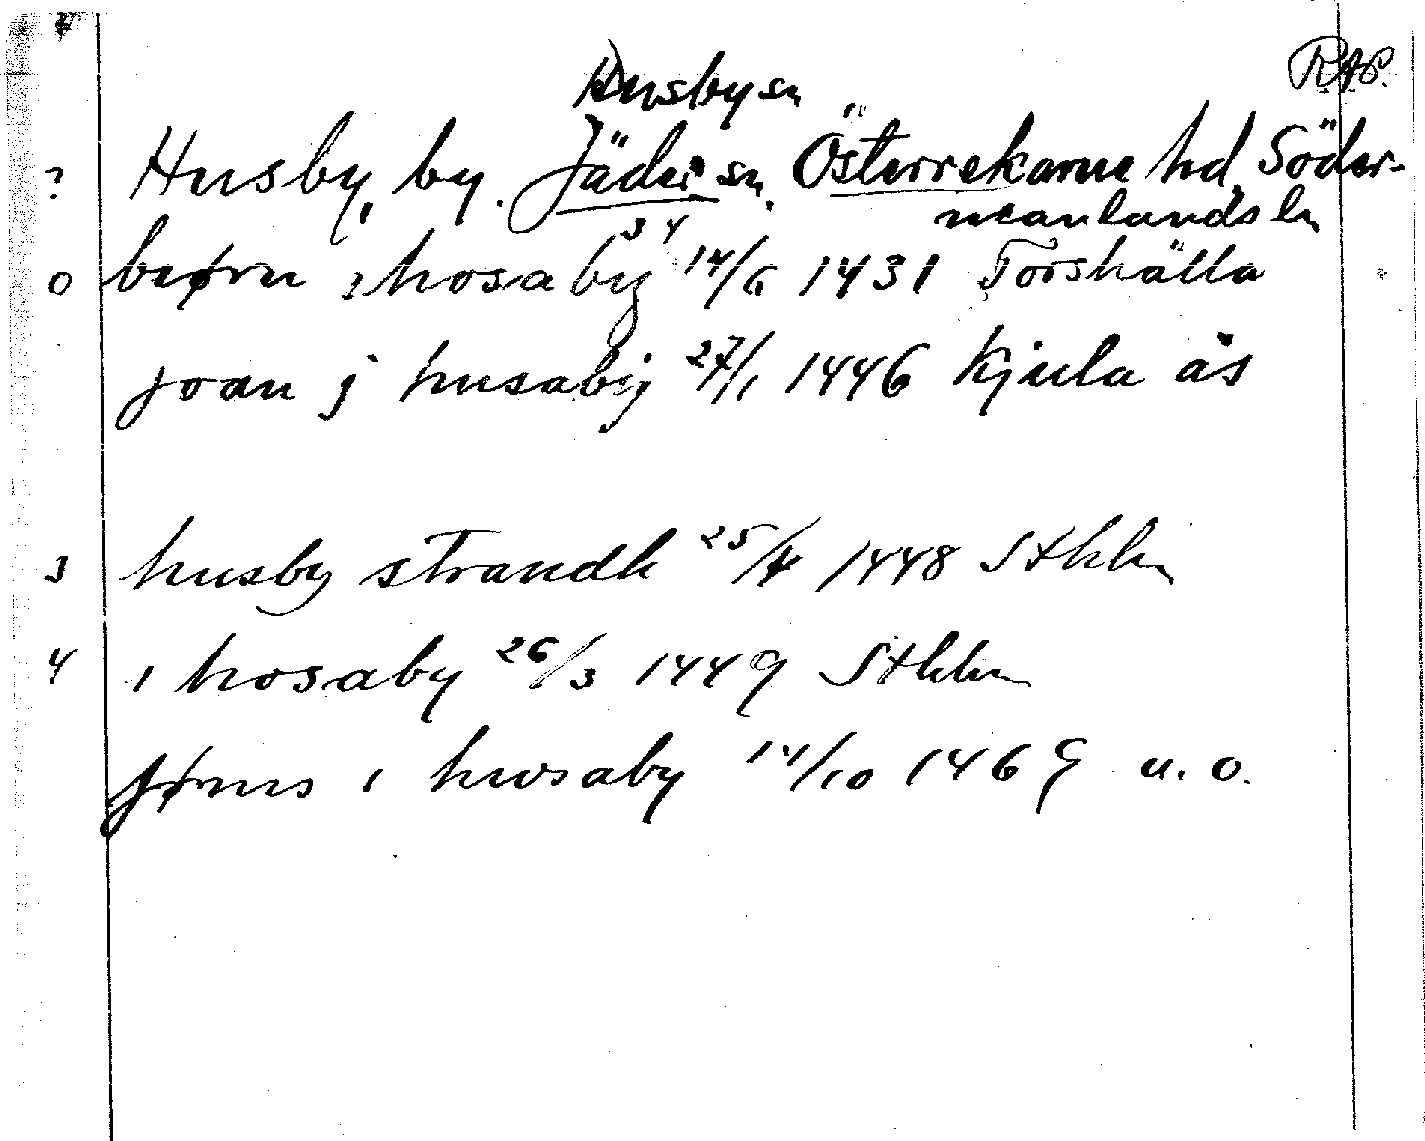 RAP.
Husby sn
? Husby, by. Jäder sn. Österrekarne hd, Söder-
manlands ln
34
o biørn i hosaby 14/6 1431 Torshälla
joan j husaby 27/1 1446 Kjula ås
3 husby strandh 25/4 1448 Sthlm
4 i hosaby 26/3 1449 Sthlm
jønis i hwsaby 14/10 1469 u. o.